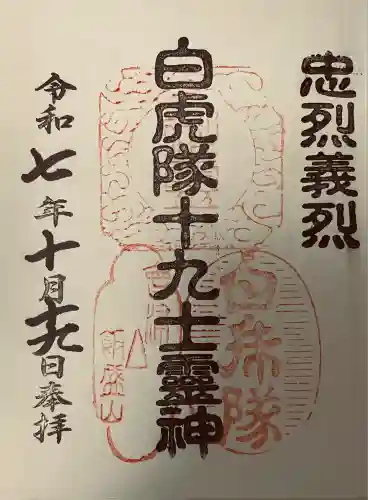 忠烈義烈
白虎隊十九士靈神
令和七年十月十九日奉拝
白虎隊
飯盛山